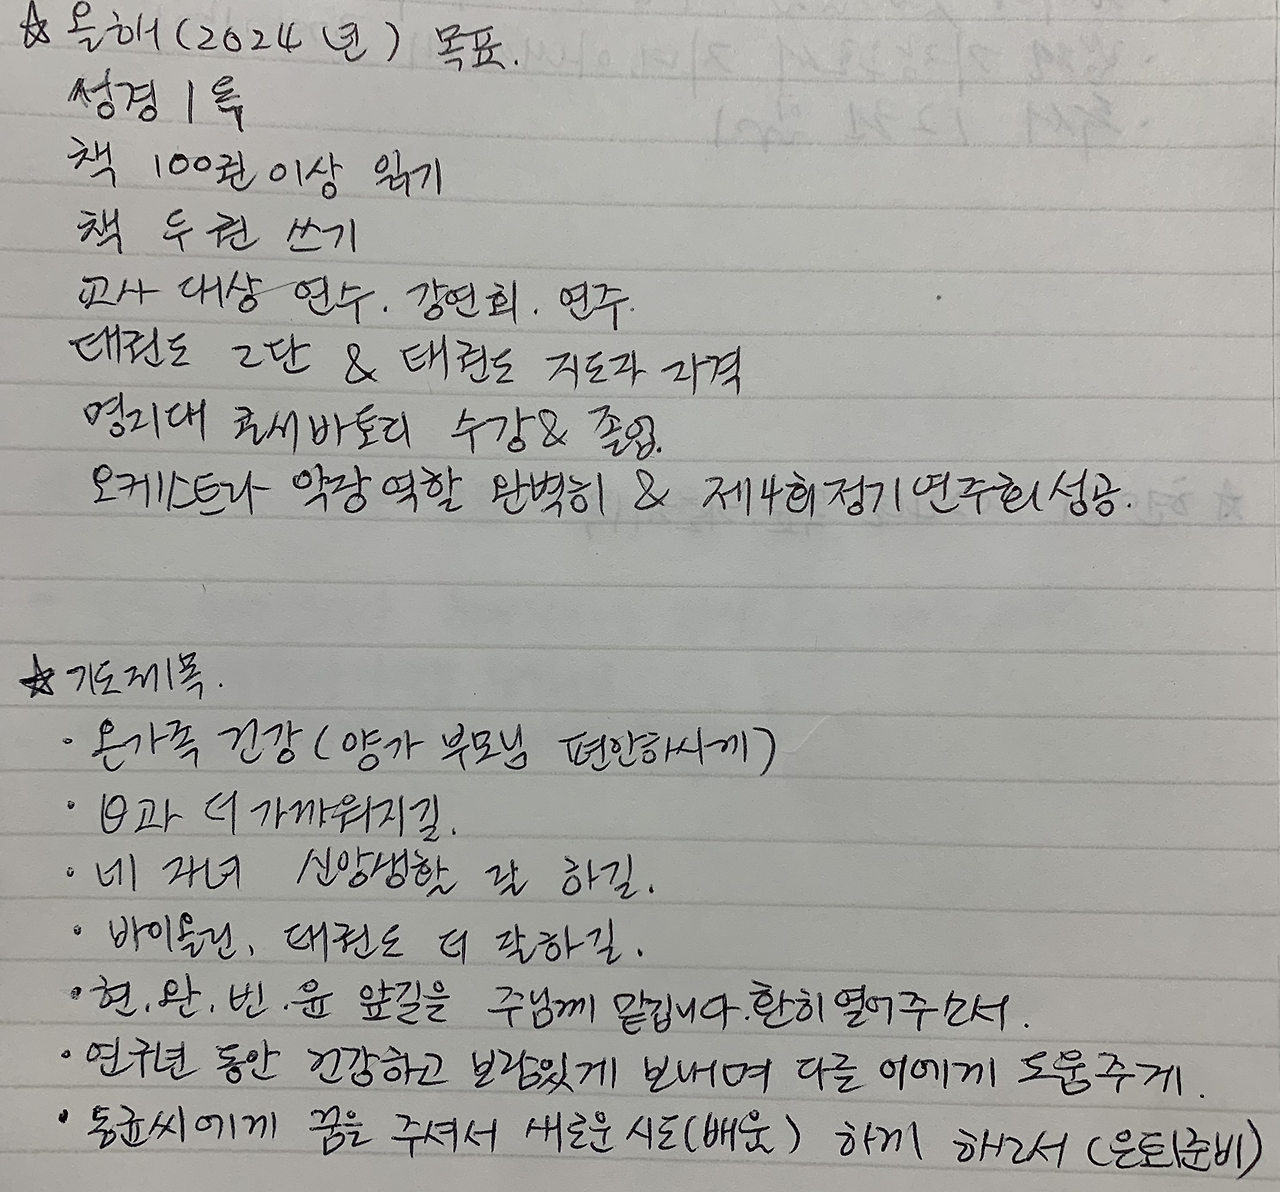 ☆ 올해(2024년) 목표.
성경 1독
책 100권 이상 읽기
책 두 권 쓰기
교사 대상 연수. 강연회. 연주.
태권도 2단 & 태권도 지도자 자격
명지대 콘서바토리 수강 & 졸업.
오케스트라 악장 역할 완벽히 & 제4회 정기연주회 성공.
☆ 기도제목.
· 온가족 건강(양가 부모님 편안하시게)
· 과 더 가까워지길.
· 네 자녀 신앙생활 잘 하길.
· 바이올린, 태권도 더 잘하길.
· 현.완.빈.윤 앞길을 주님께 맡깁니다. 환히 열어주소서.
· 연구년 동안 건강하고 보람있게 보내며 다른 이에게 도움주게.
· 동균씨에게 꿈을 주셔서 새로운 시도(배움) 하게 해주서 (은퇴준비)